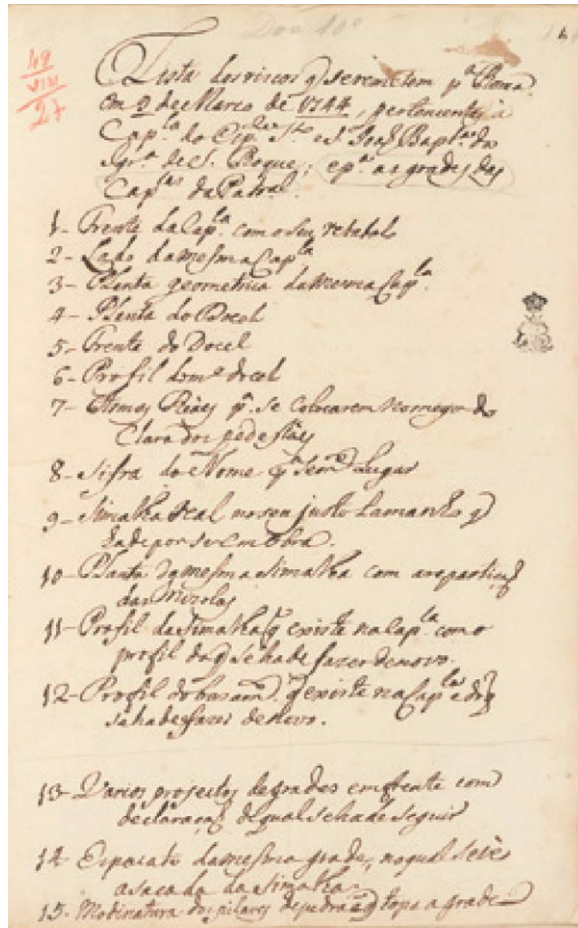 Doc 10º
49
VIII
27
Lista dos riscos q̃ se remetem pª Roma
em 2 de Março de 1744, pertencentes á
Cap.la do Esp.to S.to e S. João Bap.ta da
Igr.ª de S. Roque; e p.ª as grades das
Cap.las da Patral.
1- Frente da Cap.la com o seu retabolo
2- Lado da mesma Cap.la
3- Planta geometrica da mesma Cap.la
4- Planta do Docel
5- Frente do Docel
6- Profil do m.º docel
7- Armas Reaes p.ª se colocarem no meyo do
Claro dos pedestáes
8- Sifra do Nome p.ª o sem.e Lugar
9- Simalha Real no seu justo tamanho q̃
ha de por se em obra.
10- Planta da mesma simalha com a repartiçaõ
das Mizolas
11- Profil da simalha q̃ existe na Cap.la como
profil da q̃ se ha de fazer de novo.
12- Profil do bazam.to q̃ existe na Cap.la e do q̃
se ha de fazer de novo.
13- Varios projectos de grades em frente com
declaraçaõ de qual se ha de seguir
14- Espacato da mesma grade, no qual se vê
a sacada da simalha
15- Modinatura dos pilares de pedra em q̃ topa a grade